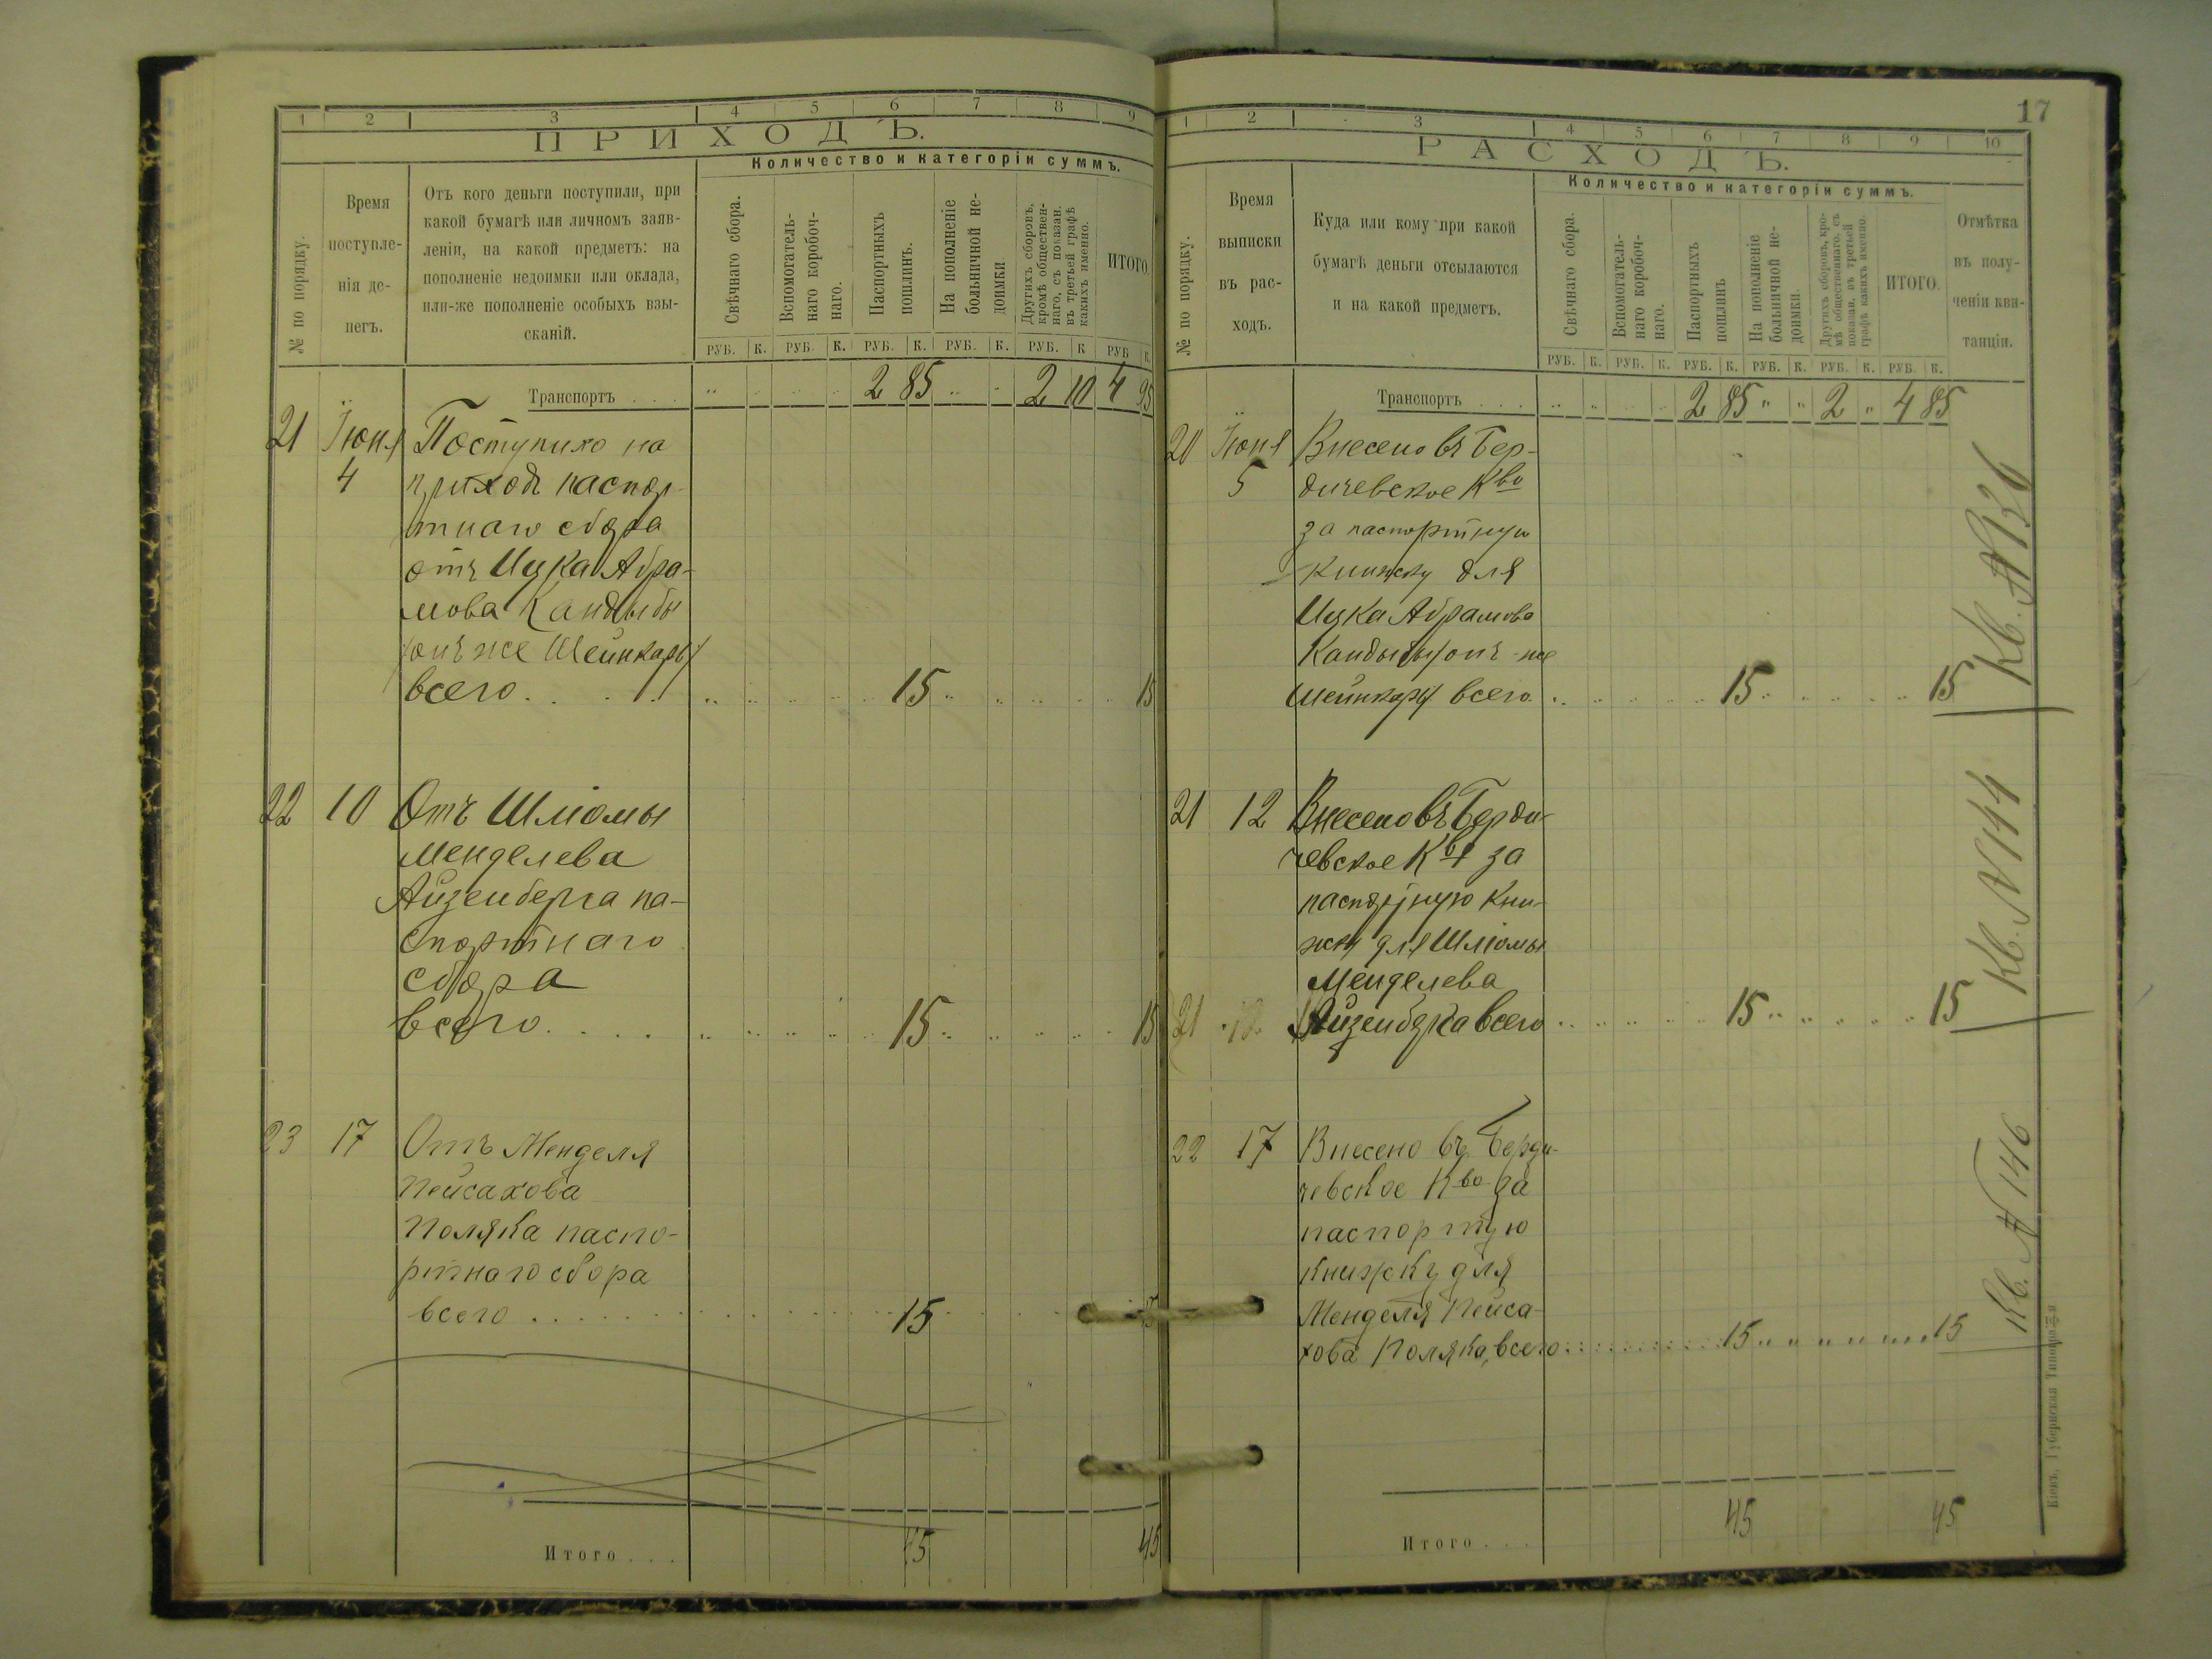 1 2 3 4 5 6 7 8 9
ПРИХОДЪ.
Количество и категоріи суммъ.
№ по порядку.
Время
поступле-
нія де-
негъ.
Отъ кого деньги поступили, при
какой бумагѣ или личномъ заяв-
леніи, на какой предметъ: на
пополненіе недоимки или оклада,
или-же пополненіе особыхъ взы-
сканій.
Свѣчнаго сбора.
Вспомогатель-
наго коробоч-
наго.
Паспортныхъ
пошлинъ.
На пополненіе
больничной не-
доимки
Другихъ сборовъ,
кромѣ обществен-
наго, съ показан.
въ третьей графѣ
какихъ именно.
ИТОГО.
РУБ. К. РУБ. К. РУБ. К. РУБ. К. РУБ. К РУБ К.
Транспортъ . . . 2 85 2 10 4 95
21 Іюня Поступило на
4 приходъ паспор-
тнаго сбора
отъ Ицка Абра-
мова Кандыбы
(онъ же Шейнкаръ)
всего . . . 15 15
22 10 Отъ Шліомы
Менделева
Айзенберга па-
спортнаго
сбора
всего . . . 15 15
23 17 Отъ Менделя
Пейсахова
Поляка паспо-
ртнаго сбора
всего . . . . . . 15 15
Итого . . . 45 45
17
1 2 3 4 5 6 7 8 9 10
РАСХОДЪ.
Количество и категоріи суммъ.
№ по порядку.
Время
выписки
въ рас-
ходъ.
Куда или кому при какой
бумагѣ деньги отсылаются
и на какой предметъ.
Свѣчнаго сбора.
Вспомогатель-
наго коробоч-
наго.
Паспортныхъ
пошлинъ
На пополненіе
больничной не-
доимки.
Другихъ сборовъ, кро-
мѣ общественнаго, съ
показан. въ третьей
графѣ какихъ именно.
ИТОГО.
Отмѣтка
въ полу-
ченіи кви-
танціи.
РУБ. К. РУБ. К. РУБ. К. РУБ. К. РУБ. К. РУБ. К.
Транспортъ . . . 2 85 " " 2 " 4 85
20 Іюня Внесено въ Бер-
5 дичевское Кво
за паспортную
книжку для
Ицка Абрамова
Кандыбы (онъ же
Шейнкаръ) всего 15 15
Кв. № 136
21 12 Внесено въ Берди-
чевское Кво за
паспортную кни-
жку для Шліомы
Менделева
21 12 Айзенберга всего 15 15
Кв. № 144
22 17 Внесено въ Берди-
чевское Кво за
паспортую
книжку для
Менделя Пейса-
хова Поляка, всего 15 " " " " " 15
Кв. № 146
Итого . . . 45 45